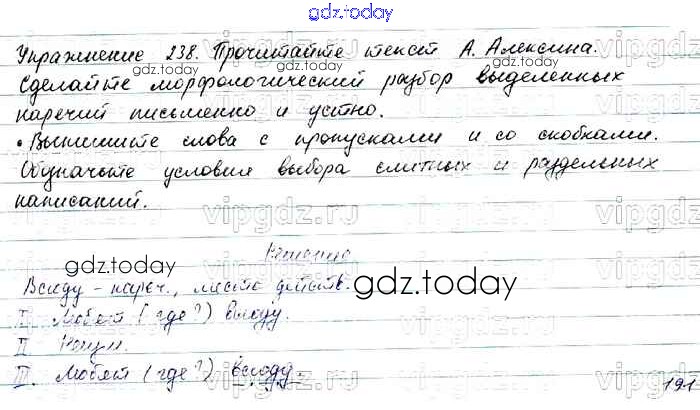 gdz.today
Упражнение 238. Прочитайте текст А. Алексина.
Сделайте морфологический разбор выделенных
наречий письменно и устно.
• Выпишите слова с пропусками и со скобками.
Обозначьте условия выбора слитных и раздельных
написаний.
Решение
Всюду – нареч., место действ.
I. Любят (где?) всюду.
II
III. Любят (где?) всюду.
191
gdz.today
gdz.today
gdz.today
gdz.today
gdz.today
gdz.today
vipgdz.ru
vipgdz.ru
vipgdz.ru
vipgdz.ru